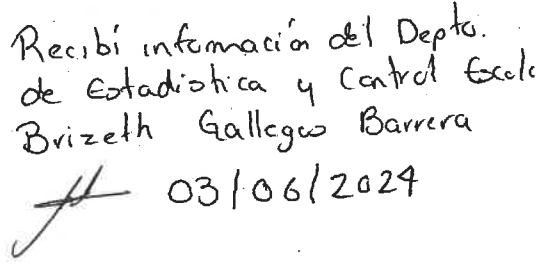 Recibí información del Depto.
de Estadistica y Control Escola
Brizeth Gallegos Barrera
03/06/2024